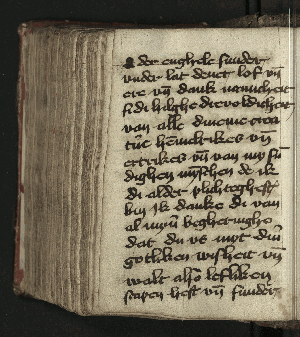 der enghele sunder
vnder lat denet lof vn̄
ere vn̄ dank
si di hilghe drevoldicheit
van alle diner crea
ture hem̄elrikes vn̄
ertrikes vn̄ van my sū
dighen myschen de ik
di alder plichteghest
byn Ik danke di van
al myner begheringhe
dat du vs myt diner
gotliken wisheit vn̄
walt also lefliken
scapen hest vn̄ sunder